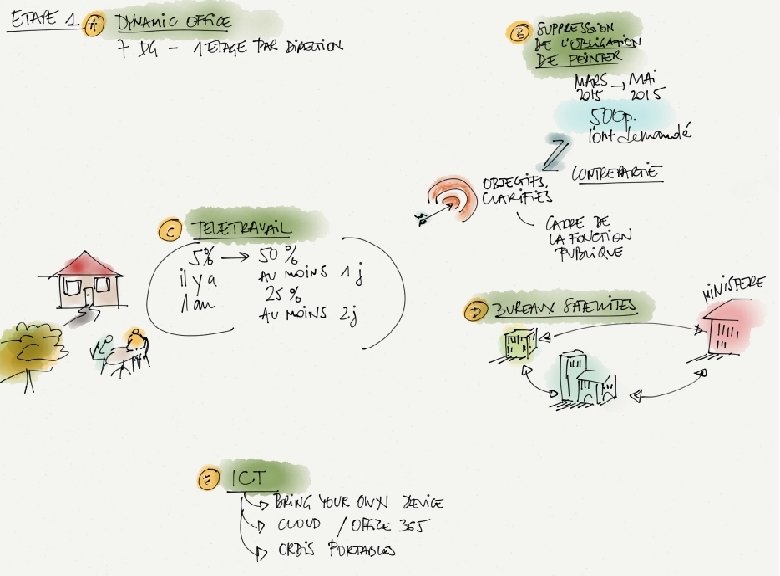 ETAPE 1. A DYNAMIC OFFICE
7 DG - 1 ETAGE PAR DIRECTION
B SUPPRESSION
DE L'OBLIGATION
DE POINTER
MARS → MAI
2015 2015
500p.
l'ont demandé
CONTREPARTIE
OBJECTIFS
CLARIFIÉS
CADRE DE
LA FONCTION
PUBLIQUE
C TELETRAVAIL
5% → 50%
il y a AU MOINS 1 j
1 an 25%
AU MOINS 2j
D BUREAUX SATELLITES
MINISTERE
E ICT
BRING YOUR OWN DEVICE
CLOUD / OFFICE 365
ORDIS PORTABLES